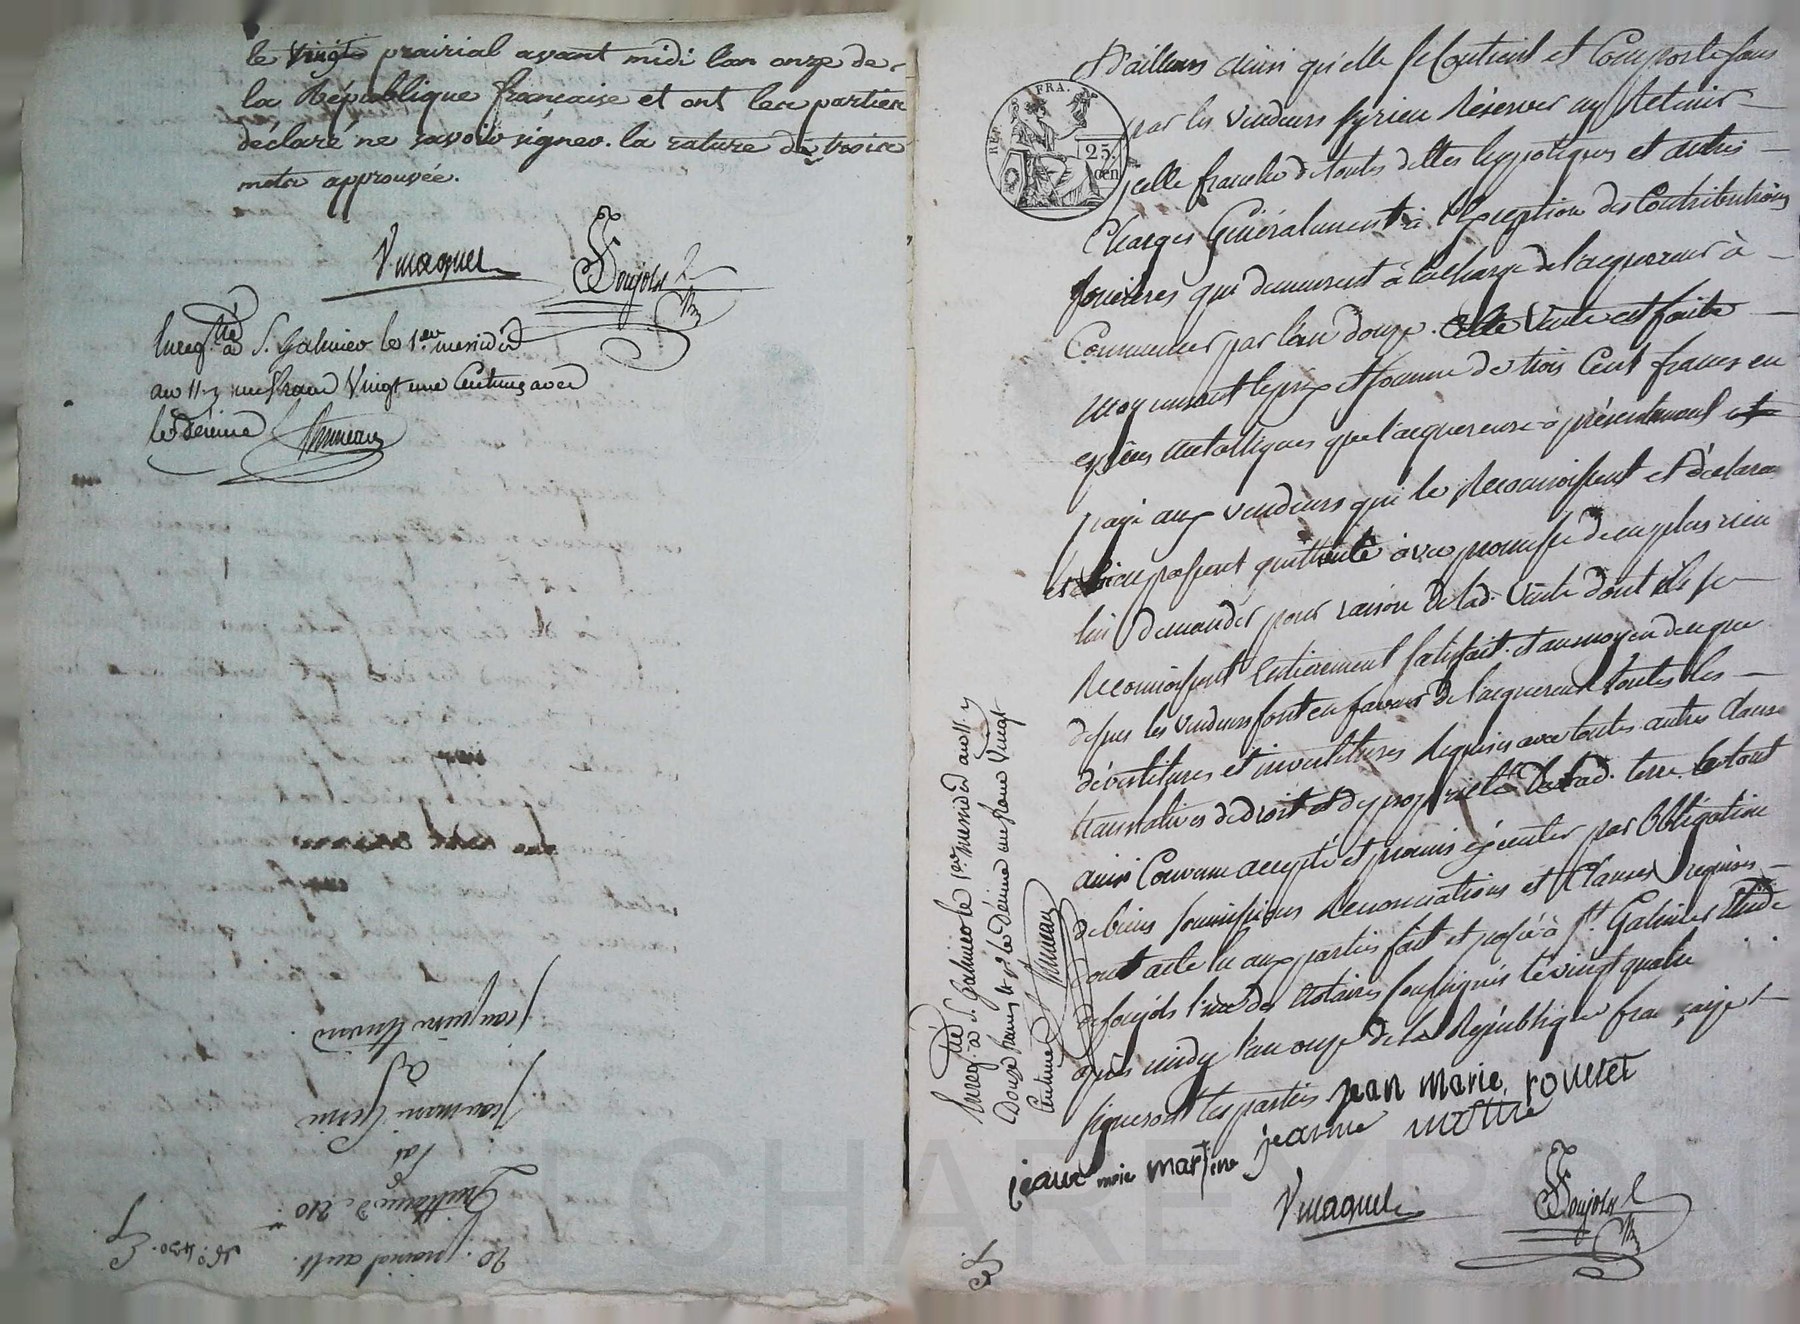 le vingt prairial avant midi l'an onze de
la République française et ont les parties
déclaré ne savoir signer. la rature de trois
mots approuvée.
Vmagnet
Soujols
Enreg.tré à S. Galmier le 1.er messidor
an 11. un franc Vingt une Centimes avec
le décime
jean marie
à
Quittance de 210
20. prairial an 11.
N.° 430.
REP FRA.
25. cen
D'ailleurs ainsi qu'elle se Contient et Comporte sans
par les Vendeurs sy rien Réserver ny Retenir
icelle franche de toutes dettes hypotèques et autres
Charges Généralement à l'Exception des Contributions
foncieres qui demeurent à la charge de l'acquereur à
Commencer par l'an douze. Cette Vente est faite
moyennant le prix et somme de trois Cent francs en
espèces metalliques que l'acquereur a présentement
payé aux vendeurs qui le Reconnoissent et déclarent
et l'en passent quittance avec promesse de ne plus rien
lui demander pour raison de lad. Vente dont ils se
Reconnoissent Entierement satisfait. et au moyen de ce que
dessus les vendeurs font en faveur de l'acquereur toutes les
dévestitures et investitures Requises avec toutes autres clauses
translatives de droit et de propriété de lad. terre le tout
ainsi Convenu accepté et promis exécuter par Obligation
de biens soumissions Renonciations et Clauses requises
dont acte lu aux parties fait et passé à St. Galmier Etude
de soujols l'un des Notaires soussignés le vingt quatre
après midy l'an onze de la République française
signeront les parties jean marie rousset
jeanne
Enreg.tré à S. Galmier le 1.er messidor an 11.
Douze francs le décime un franc Vingt
Centimes
Vmagnet
Soujols
CHAREYRON